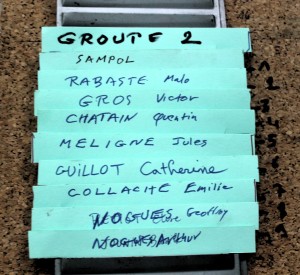 GROUPE 2
SAMPOL
RABASTE Malo
GROS Victor
CHATAIN Quentin
MELIGNE Jules
GUILLOT Catherine
COLLACHE Emilie
NOGUES Geoffroy